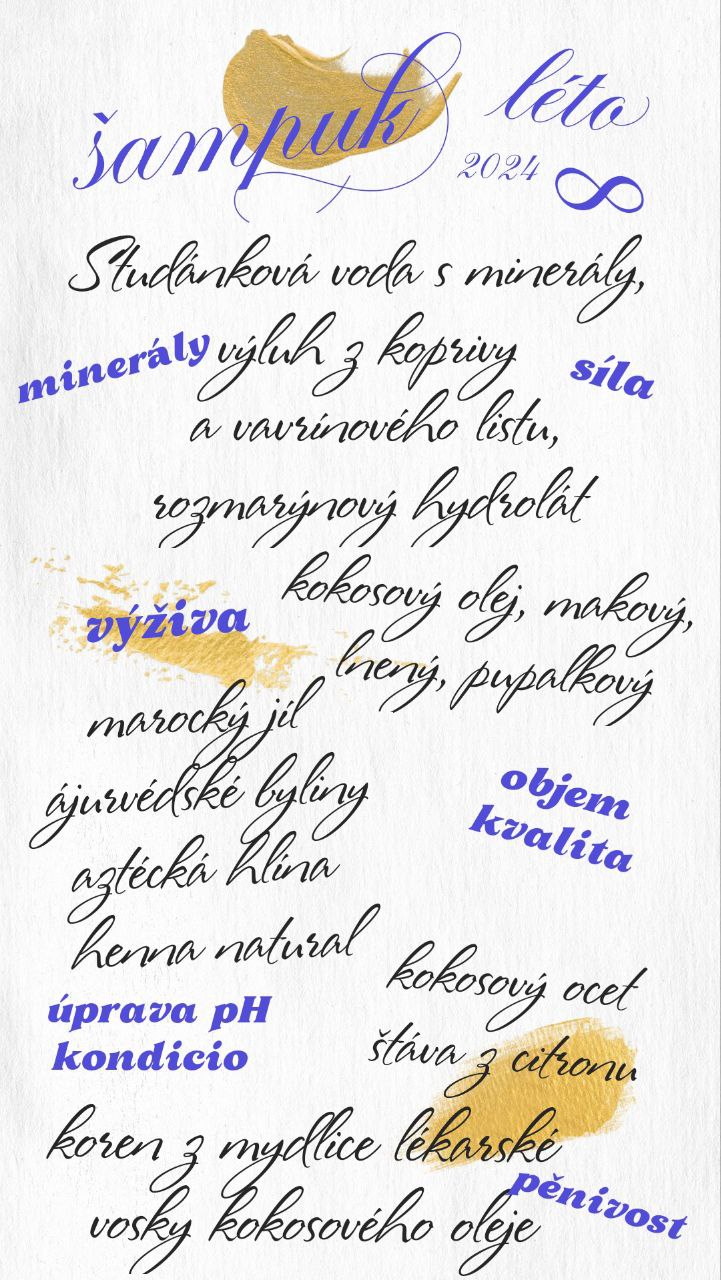 šampuk
léto
2024 ∞
Studánková voda s minerály,
minerály
výluh z koprivy
síla
a vavrínového listu,
rozmarýnový hydrolát
kokosový olej, makový,
výživa
lnený, pupalkový
marocký jíl
ájurvédské byliny
objem
kvalita
aztécká hlína
henna natural
kokosový ocet
úprava pH
kondicio
štáva z citronu
koren z mydlice lékarské
pěnivost
vosky kokosového oleje